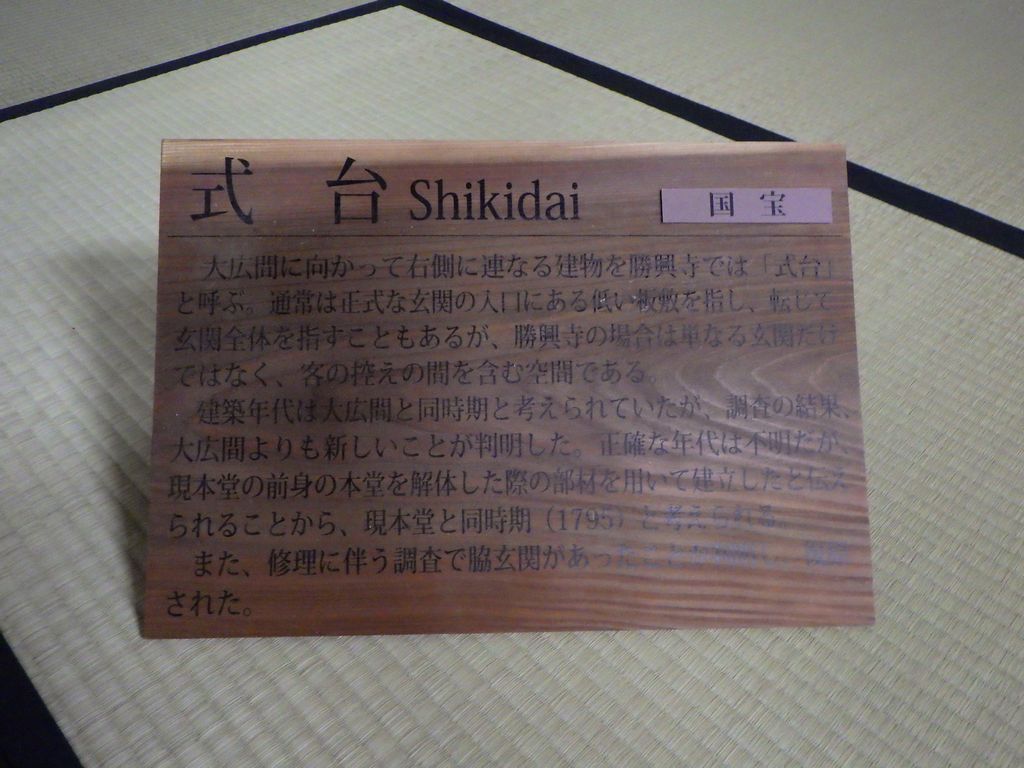 式 台 Shikidai
国宝
大広間に向かって右側に連なる建物を勝興寺では「式台」
と呼ぶ。通常は正式な玄関の入口にある低い板敷を指し、転じて
玄関全体を指すこともあるが、勝興寺の場合は単なる玄関だけ
ではなく、客の控えの間を含む空間である。
建築年代は大広間と同時期と考えられていたが、調査の結果、
大広間よりも新しいことが判明した。正確な年代は不明だが、
現本堂の前身の本堂を解体した際の部材を用いて建立したと伝え
られることから、現本堂と同時期（1795）と考えられる。
また、修理に伴う調査で脇玄関があったことが判明し、
された。